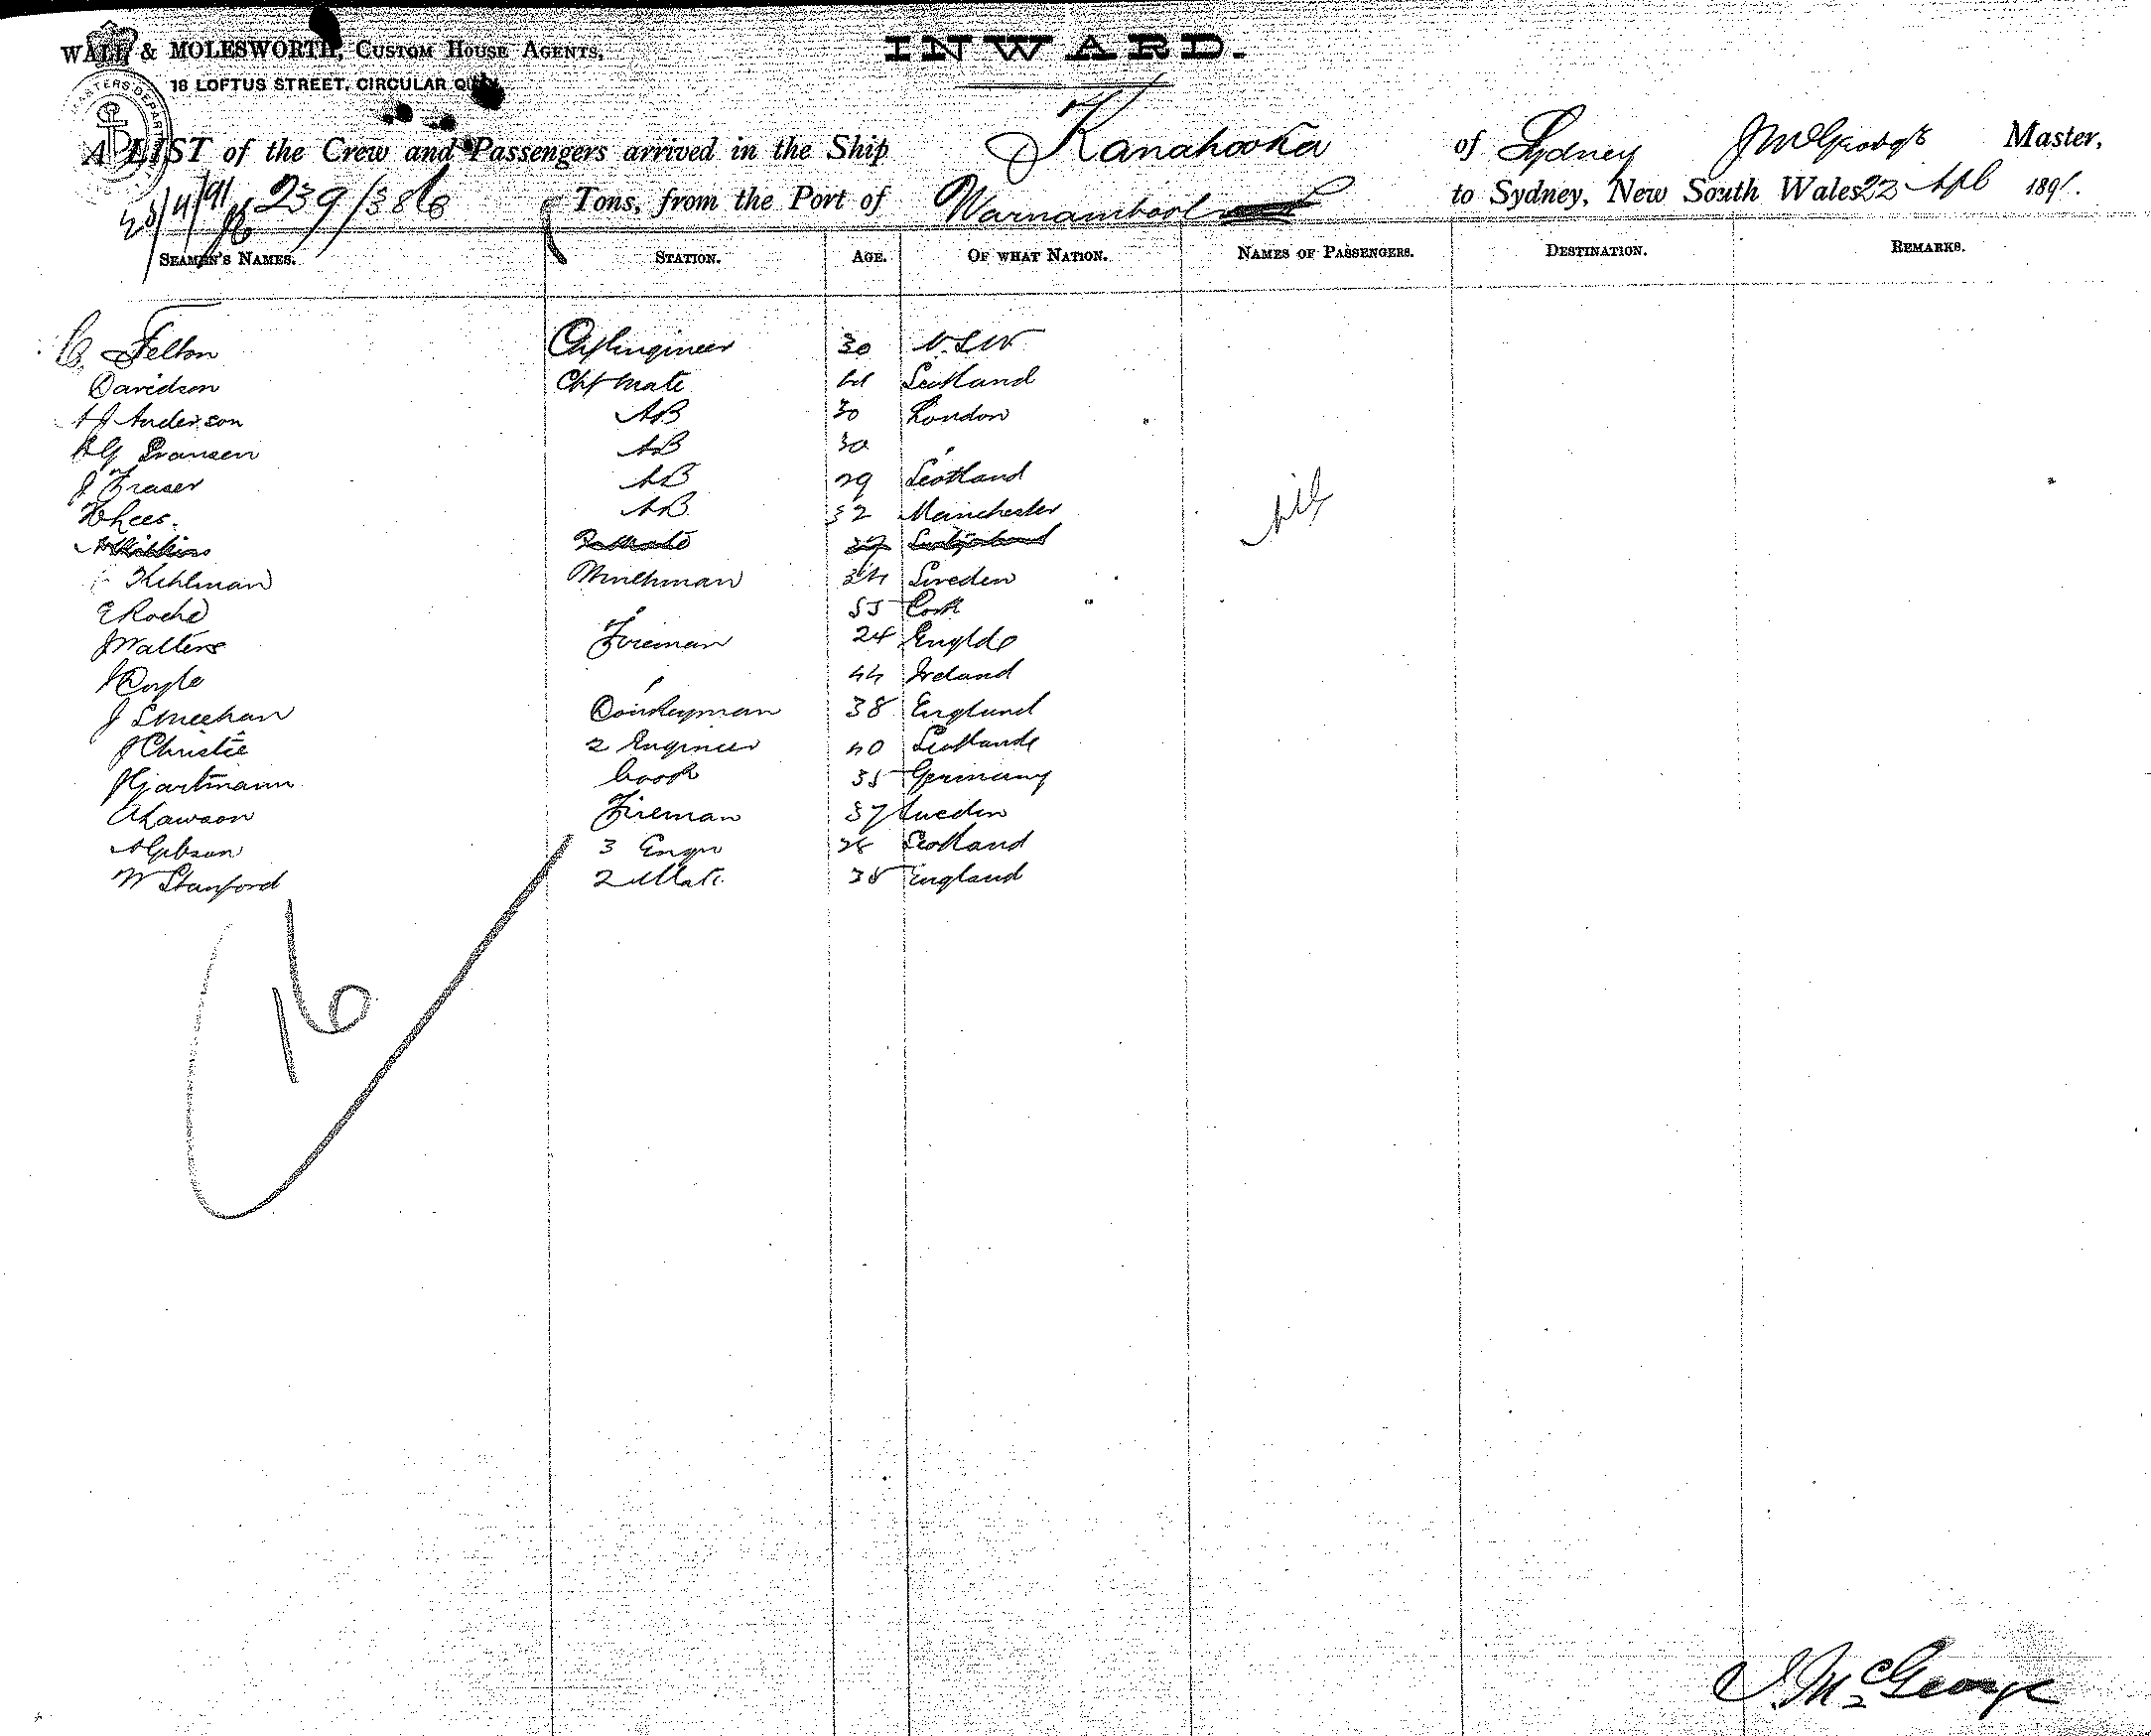 WALL & MOLESWORTH, CUSTOM HOUSE AGENTS,
18 LOFTUS STREET, CIRCULAR QUAY
INWARD.
A LIST of the Crew and Passengers arrived in the Ship Kanahooka of Sydney J McGeorge Master,
239/386 Tons, from the Port of Warnambool to Sydney, New South Wales 22 Apl 1891.
SEAMEN'S NAMES. STATION. AGE. OF WHAT NATION. NAMES OF PASSENGERS. DESTINATION. REMARKS.
C. Felton Chf Engineer 30 N.S.W
Davidson Chf Mate Scotland
A J Anderson AB 30 London
AB 30
J Fraser AB 29 Scotland
AB 32 Manchester
Nil
Kihlman Winchman 34 Sweden
E Roche 55 Cork
J Walters Fireman 24 Englde
J Doyle 44 Ireland
J Smeehan Donkeyman 38 England
J Christie 2 Engineer 40 Scotland
Hjartmann Cook 35 Germany
A Lawson Fireman 37 Sweden
A Gibson 3 Engnr Scotland
W Stanford 2 Mate 38 England
16
J. McGeorge